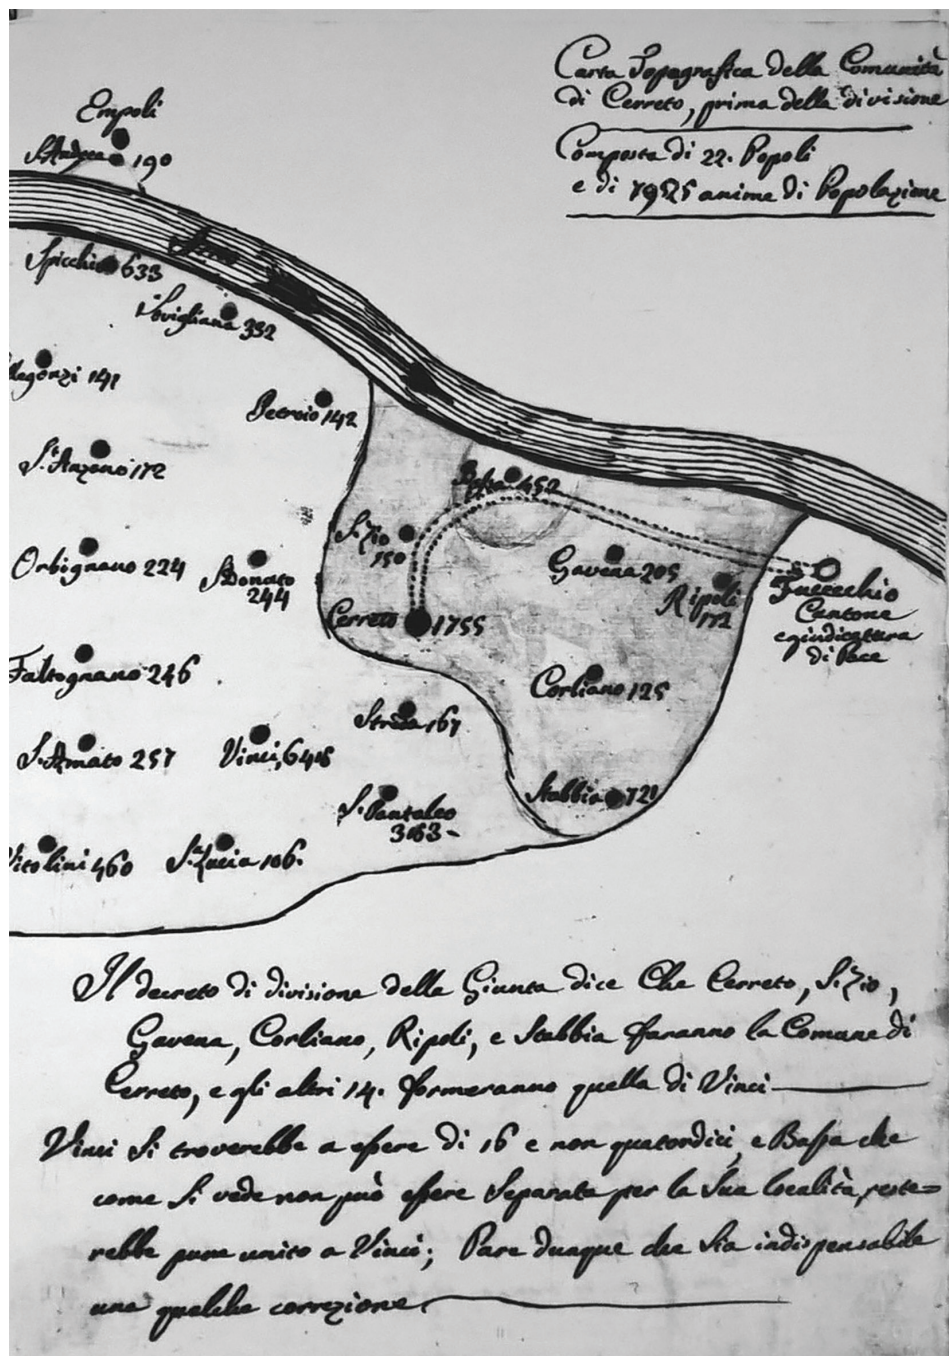 Carta Topografica della Comunità
di Cerreto, prima della divisione
Composta di 22. Popoli
e di 7925 anime di Popolazione
Empoli
S. Andrea 190
Arno
Spicchio 633
Sovigliana 332
141
Petroio 142
S. Anzano 172
Bassa 452
S. Zio
150
Orbignano 224
S. Donato
244
Gavena 205
Ripoli
172
Fucecchio
Cantone
e giudicatura
di Pace
Cerreto 1755
Faltognano 246
Corliano 125
Streda 167
S. Amato 257
Vinci, 648
Stabbia 721
S. Pantaleo
Vitolini 460
S.a Lucia 106.
Il decreto di divisione della Giunta dice Che Cerreto, S. Zio,
Gavena, Corliano, Ripoli, e Stabbia faranno la Comune di
Cerreto, e gli altri 14. formeranno quella di Vinci
Vinci Si troverebbe a essere di 16 e non quatordici, e Bassa che
come Si vede non può essere Separata per la Sua località, reste=
rebbe pure unito a Vinci; Pare dunque che Sia indispensabile
una qualche correzione